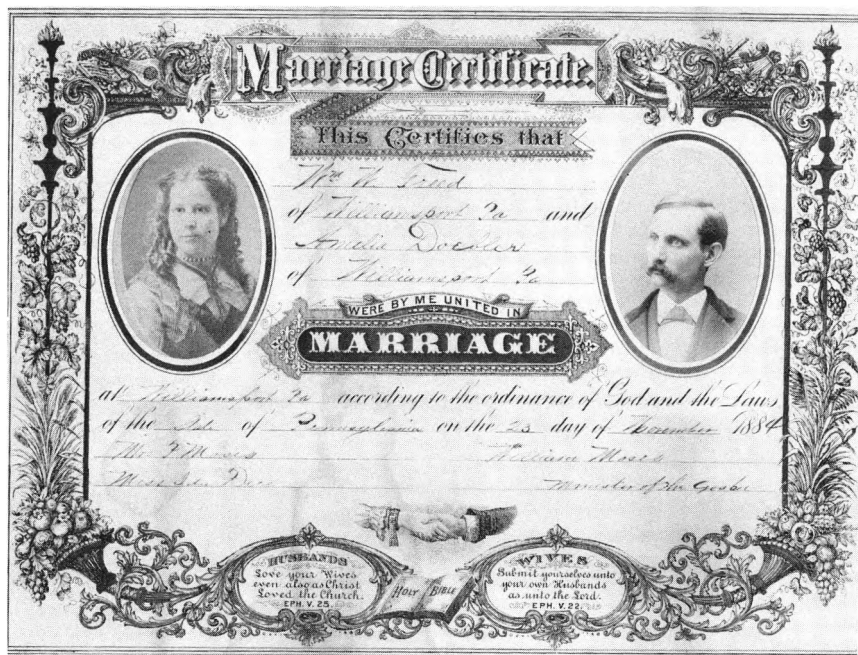 Marriage Certificate
This Certifies that
Wm W. Freed
of Williamsport Pa and
Amelia Doebler
of Williamsport Pa
WERE BY ME UNITED IN
MARRIAGE
at Williamsport Pa according to the ordinance of God and the Laws
of the State of Pennsylvania on the 25 day of November 1884
Mr F Moses
William Moses
Miss
Minister of the Gospel
HUSBANDS
Love your Wives
even also as Christ
Loved the Church.
EPH. V. 25.
HOLY BIBLE
WIVES
Submit yourselves unto
your own Husbands
as unto the Lord.
EPH. V. 22.